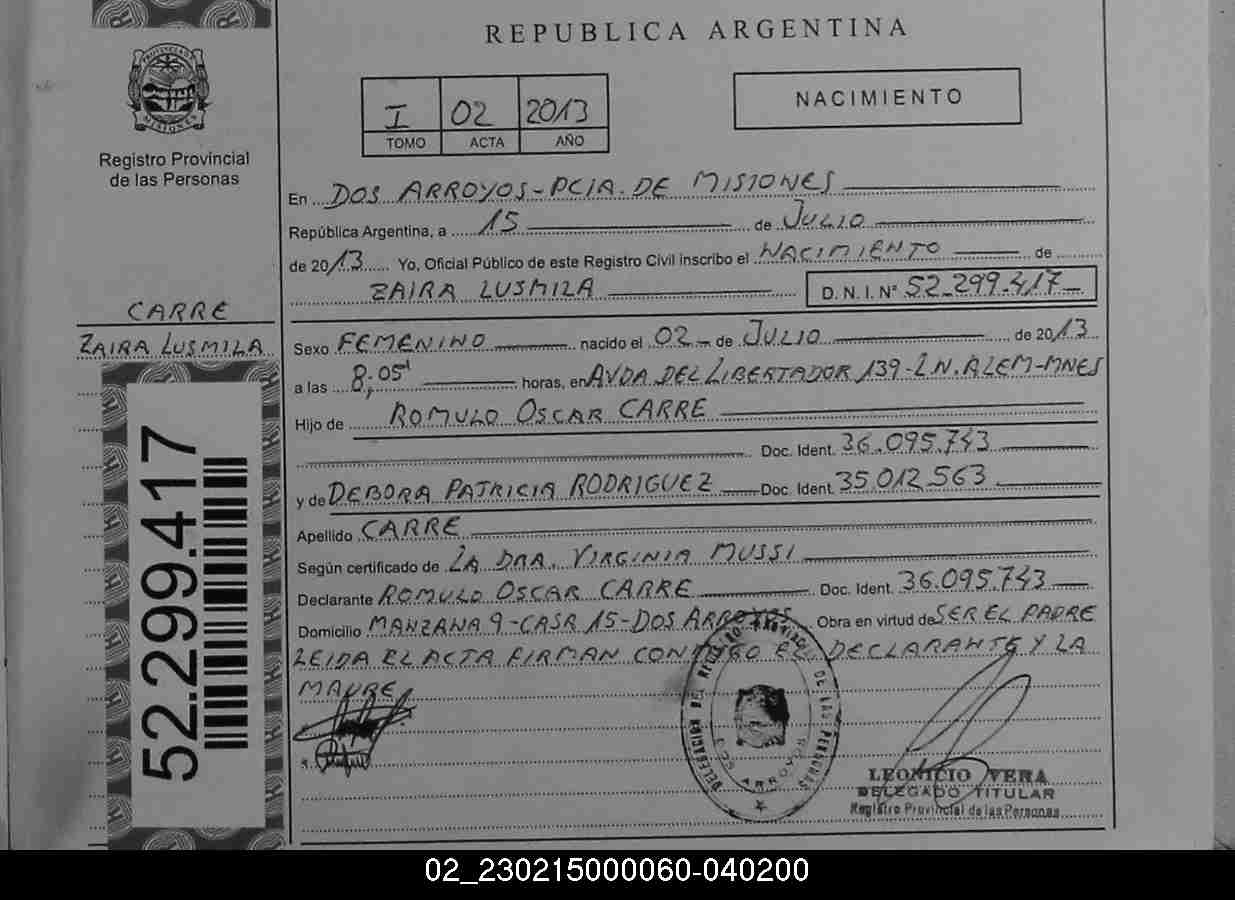 REPUBLICA ARGENTINA
PROVINCIA DE
MISIONES
Registro Provincial
de las Personas
I 02 2013
TOMO ACTA AÑO
NACIMIENTO
En DOS ARROYOS-PCIA. DE MISIONES
República Argentina, a 15 de JULIO
de 2013 Yo, Oficial Público de este Registro Civil inscribo el NACIMIENTO de
ZAIRA LUSMILA D. N. I. N° 52.299.417
CARRE
ZAIRA LUSMILA
Sexo FEMENINO nacido el 02 de JULIO de 2013
a las 8,05 horas, en AVDA DEL LIBERTADOR 139-L N. ALEM-MNES
Hijo de ROMULO OSCAR CARRE
Doc. Ident. 36.095.743
y de DEBORA PATRICIA RODRIGUEZ Doc. Ident. 35.012.563
Apellido CARRE
Según certificado de LA DRA. VIRGINIA MUSSI
Declarante ROMULO OSCAR CARRE Doc. Ident. 36.095.743
Domicilio MANZANA 9-CASA 15-DOS ARROYOS Obra en virtud de SER EL PADRE
LEIDA EL ACTA FIRMAN CONMIGO EL DECLARANTE Y LA
MADRE
52.299.417
DELEGACION DEL REGISTRO PROVINCIAL DE LAS PERSONAS
DOS ARROYOS
LEONICIO VERA
DELEGADO TITULAR
Registro Provincial de las Personas
02_230215000060-040200